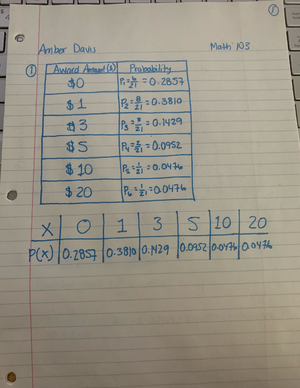 ①
Amber Davis Math 103
① Award Amount (X) Probability
$0 P₁ = 6/21 = 0.2857
$1 P₂ = 8/21 = 0.3810
$3 P₃ = 3/21 = 0.1429
$5 P₄ = 2/21 = 0.0952
$10 P₅ = 1/21 = 0.0476
$20 P₆ = 1/21 = 0.0476
X 0 1 3 5 10 20
P(X) 0.2857 0.3810 0.1429 0.0952 0.0476 0.0476